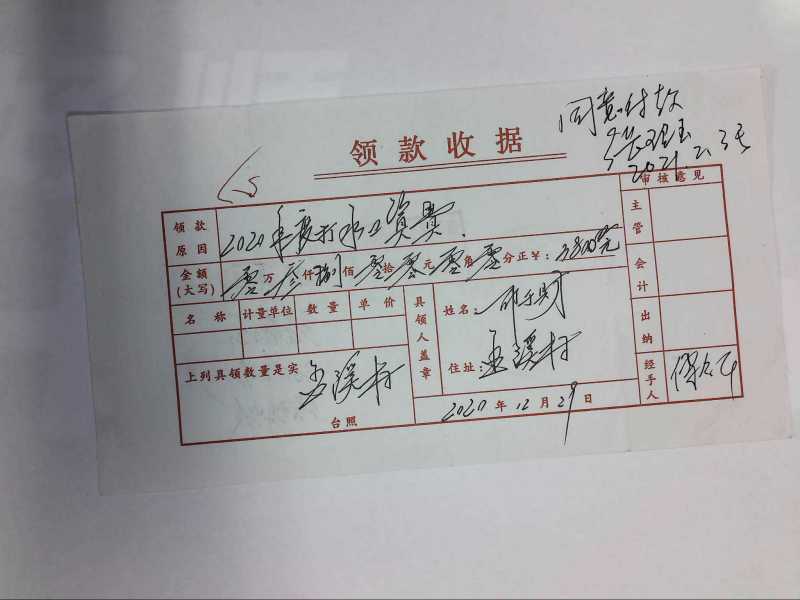 同意付款
2021.2.3号
领款收据
审核意见
领款原因 2020年度打水工资费.
金额(大写) 零万叁仟捌佰零拾零元零角零分正¥:3800.00元
名称 计量单位 数量 单价
具领人盖章
姓名:
住址:玉溪村
上列具领数量是实
玉溪村
台照
2020年12月29日
主管
会计
出纳
经手人